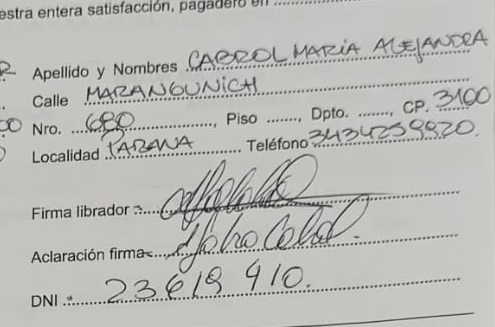 estra entera satisfacción, pagadero en
Apellido y Nombres CABROL MARIA ALEJANDRA
Calle MARANGUNICH
Nro. 680, Piso ......., Dpto. ......., CP. 3100
Localidad PARANA Teléfono 3434259920.
Firma librador :
Aclaración firma
DNI : 23619910.